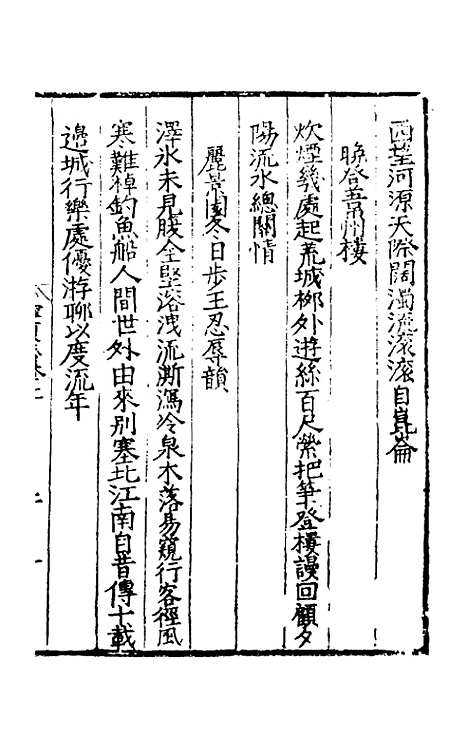 西望河源天際闊濁流滚滚自崑崙
晚登韋州樓
炊煙幾處起荒城柳外遊絲百尺縈把筆登樓謾回顧夕
陽流水總關情
麗景園冬日步王忍辱韻
澤水未見腹全堅溶洩流澌瀉冷泉木落易窺行客徑風
寒難棹釣魚船人間世外由來别塞北江南自昔傳十載
邉城行樂處優游聊以度流年